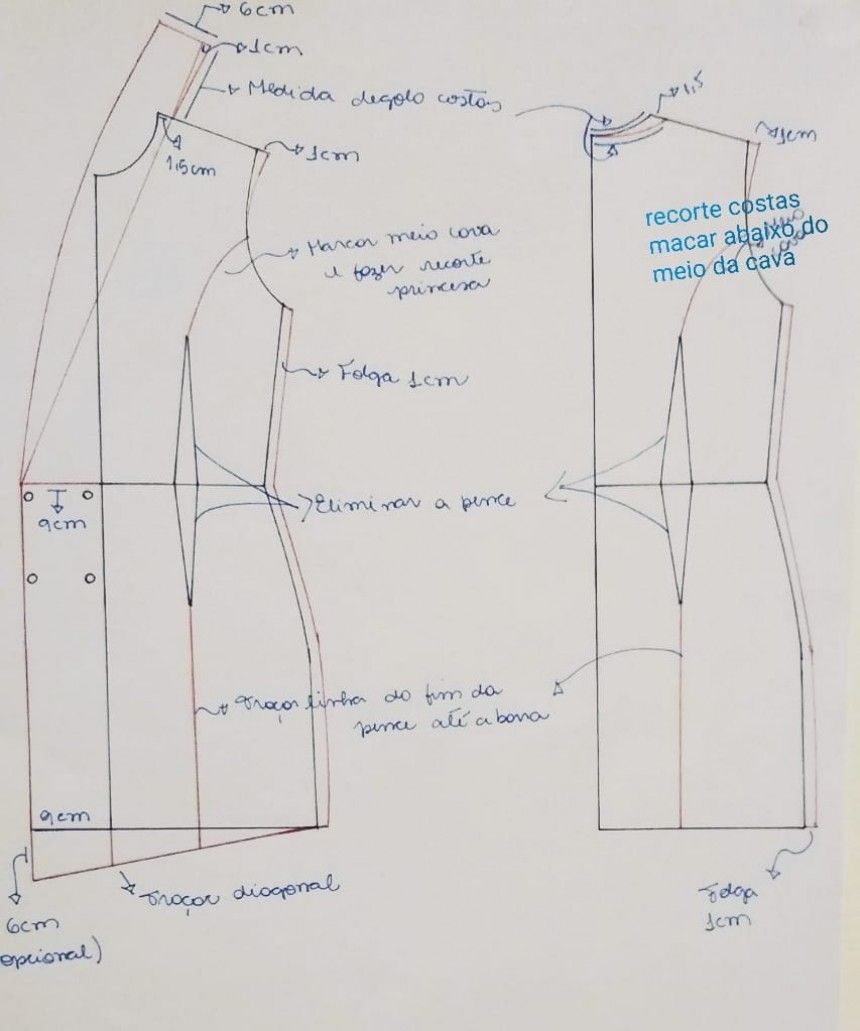 6cm
1cm
Medida degolo costas
1,5cm
1cm
Marcar meio cava
e fazer recorte
princesa
Folga 1cm
9cm
Eliminar a pence
Traçar linha do fim da
pence até a barra
9cm
Traçar diagonal
6cm
opcional)
1,5
1cm
recorte costas
macar abaixo do
meio da cava
Folga
1cm